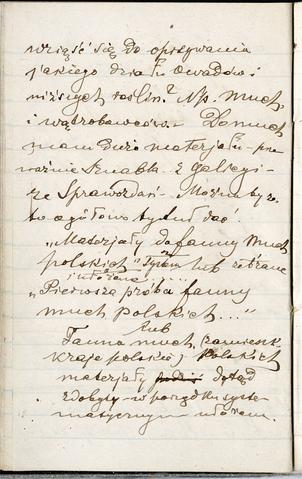 wziąść się do opisywania
jakiego działu owadów i
niższych roślin? Np. much,
i wątrobowców. - Do much
mam dużo materjału - prze-
ważnie Sznabla. z Galicyi -
ze Sprawozdań - Można by ze-
to ogółowo tytuł dać:
„Materjały do fauny much
polskich" lub zebrane
i ułożone ......
„Pierwsza próba fauny
much polskich..."
lub
Fauna much, (zamieszk.
kraje polskie) Polskich
materjały dotąd
zdobyty - w porządku syste-
matycznym ułożone.